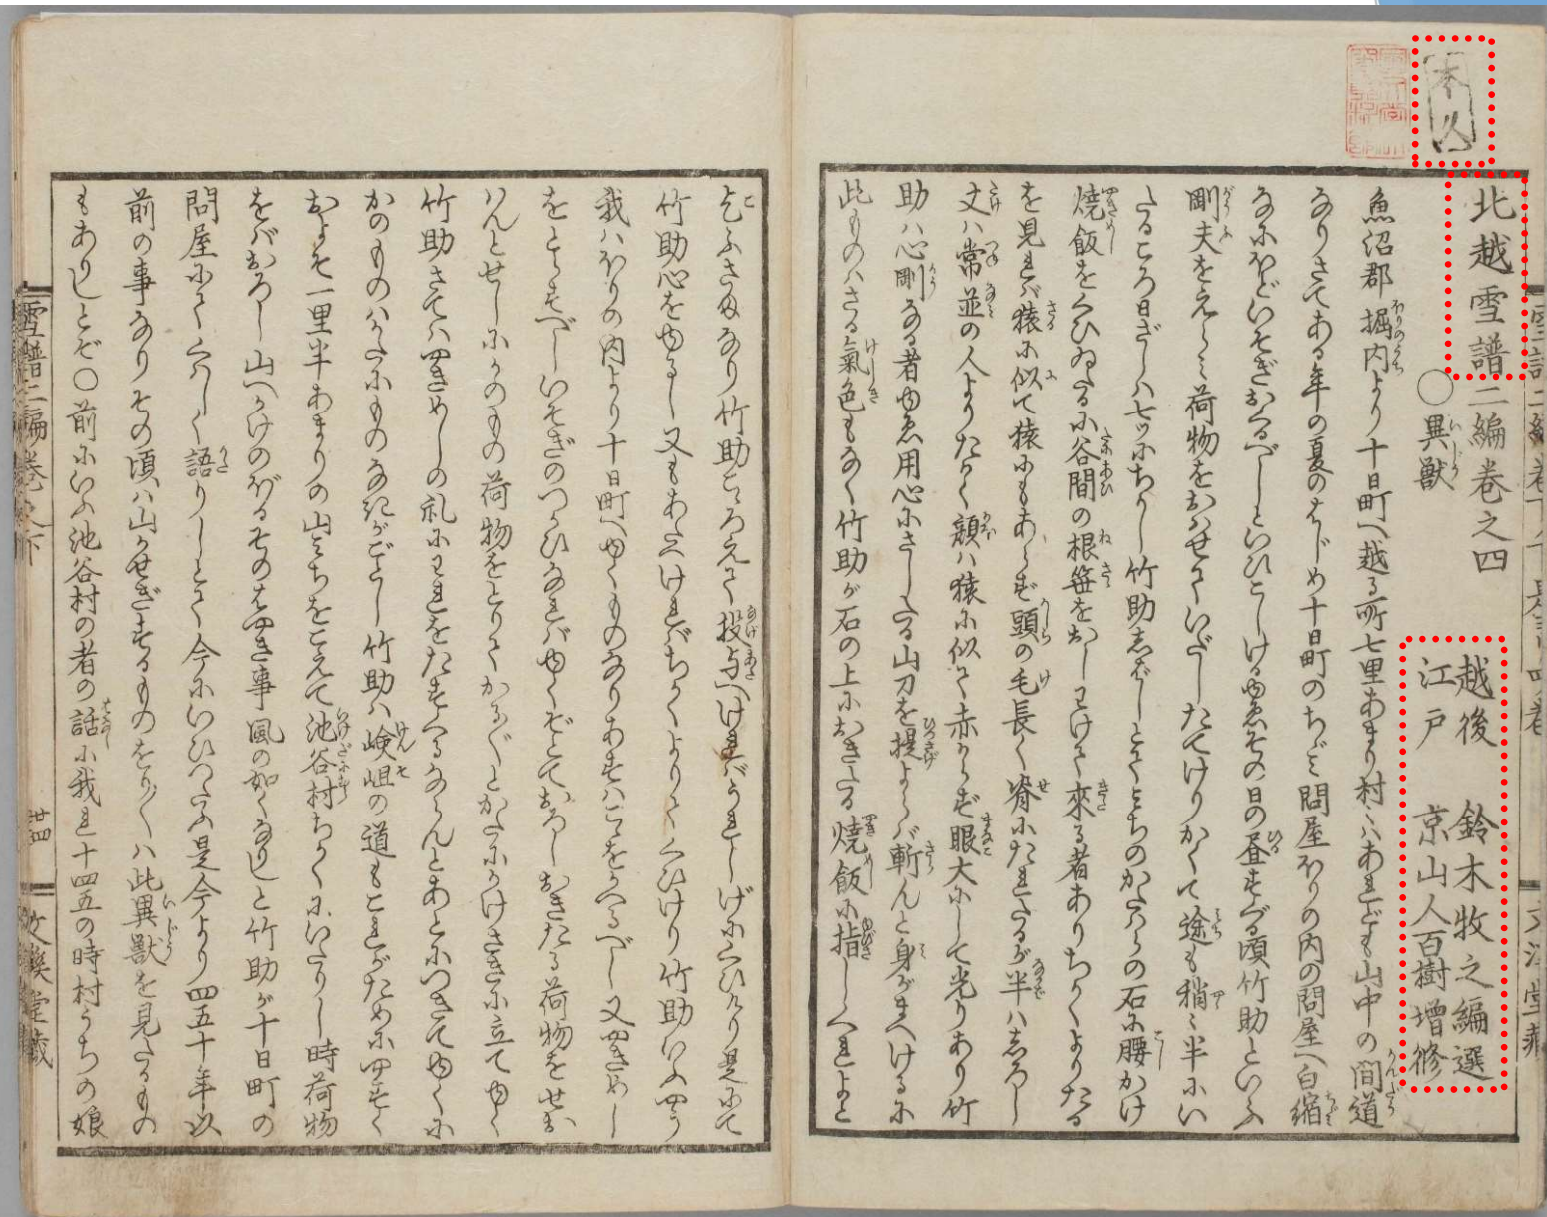 本久
北越雪譜二編巻之四
越後　鈴木牧之編選
江戸　京山人百樹増修
○異獣
魚沼郡堀内より十日町へ越る所七里あまり村々はあれども山中の間道
なりさてある年の夏のはじめ十日町のちゞみ問屋ほりの内の問屋へ白縮
なにほどいそぎおくるべしといひこしけるゆゑその日の昼すぐる頃竹助といふ
剛夫をえらみ荷物をおはせていだしたてけりかくて途も稍々半にい
たるころ日ざしは七ツにちかし竹助しばしとてみちのかたはらの石に腰かけ
焼飯をくひゐたるに谷間の根笹をおしわけて来る者ありちかくよりたる
を見れば猿に似て猿にもあらず頭の毛長く脊にたれたるが半はしろし
丈は常並の人よりたかく顔は猿に似て赤からず眼大にして光りあり竹
助は心剛なる者ゆゑ用心にさしたる山刀を提よらば斬んと身がまへけるに
此ものはさる氣色もなく竹助が石の上におきたる焼飯に指しくれよと
乞ふさまなり竹助こゝろえて投与へければうれしげにくひけり是にて
竹助心をゆるし又もあたへければちかくよりてくひけり竹助いふやう
我はほりの内より十日町へゆくものなりあすはこゝをかへるべし又やきめし
をとらすべしいそぎのつかひなればゆくぞとておろしおきたる荷物をせお
はんとせしにかのもの荷物をとりてかる〴〵とかたにかけさきに立てゆく
竹助さてはやきめしの礼にわれをたすくるならんとあとにつきてゆくに
かのものはかたにものなきがごとし竹助は嶮岨の道もこれがためにやすく
およそ一里半あまりの山みちをこえて池谷村ちかくにいたりし時荷物
をばおろし山へかけのぼるそのはやき事風の如くなりしと竹助が十日町の
問屋にてくはしく語りしとて今にいひつたふ是今より四五十年以
前の事なりその頃は山かせぎするものをり〳〵は此異獣を見たるもの
もありしとぞ○前にいふ池谷村の者の話に我れ十四五の時村うちの娘
雪譜二編巻之下
廿四
文溪堂藏